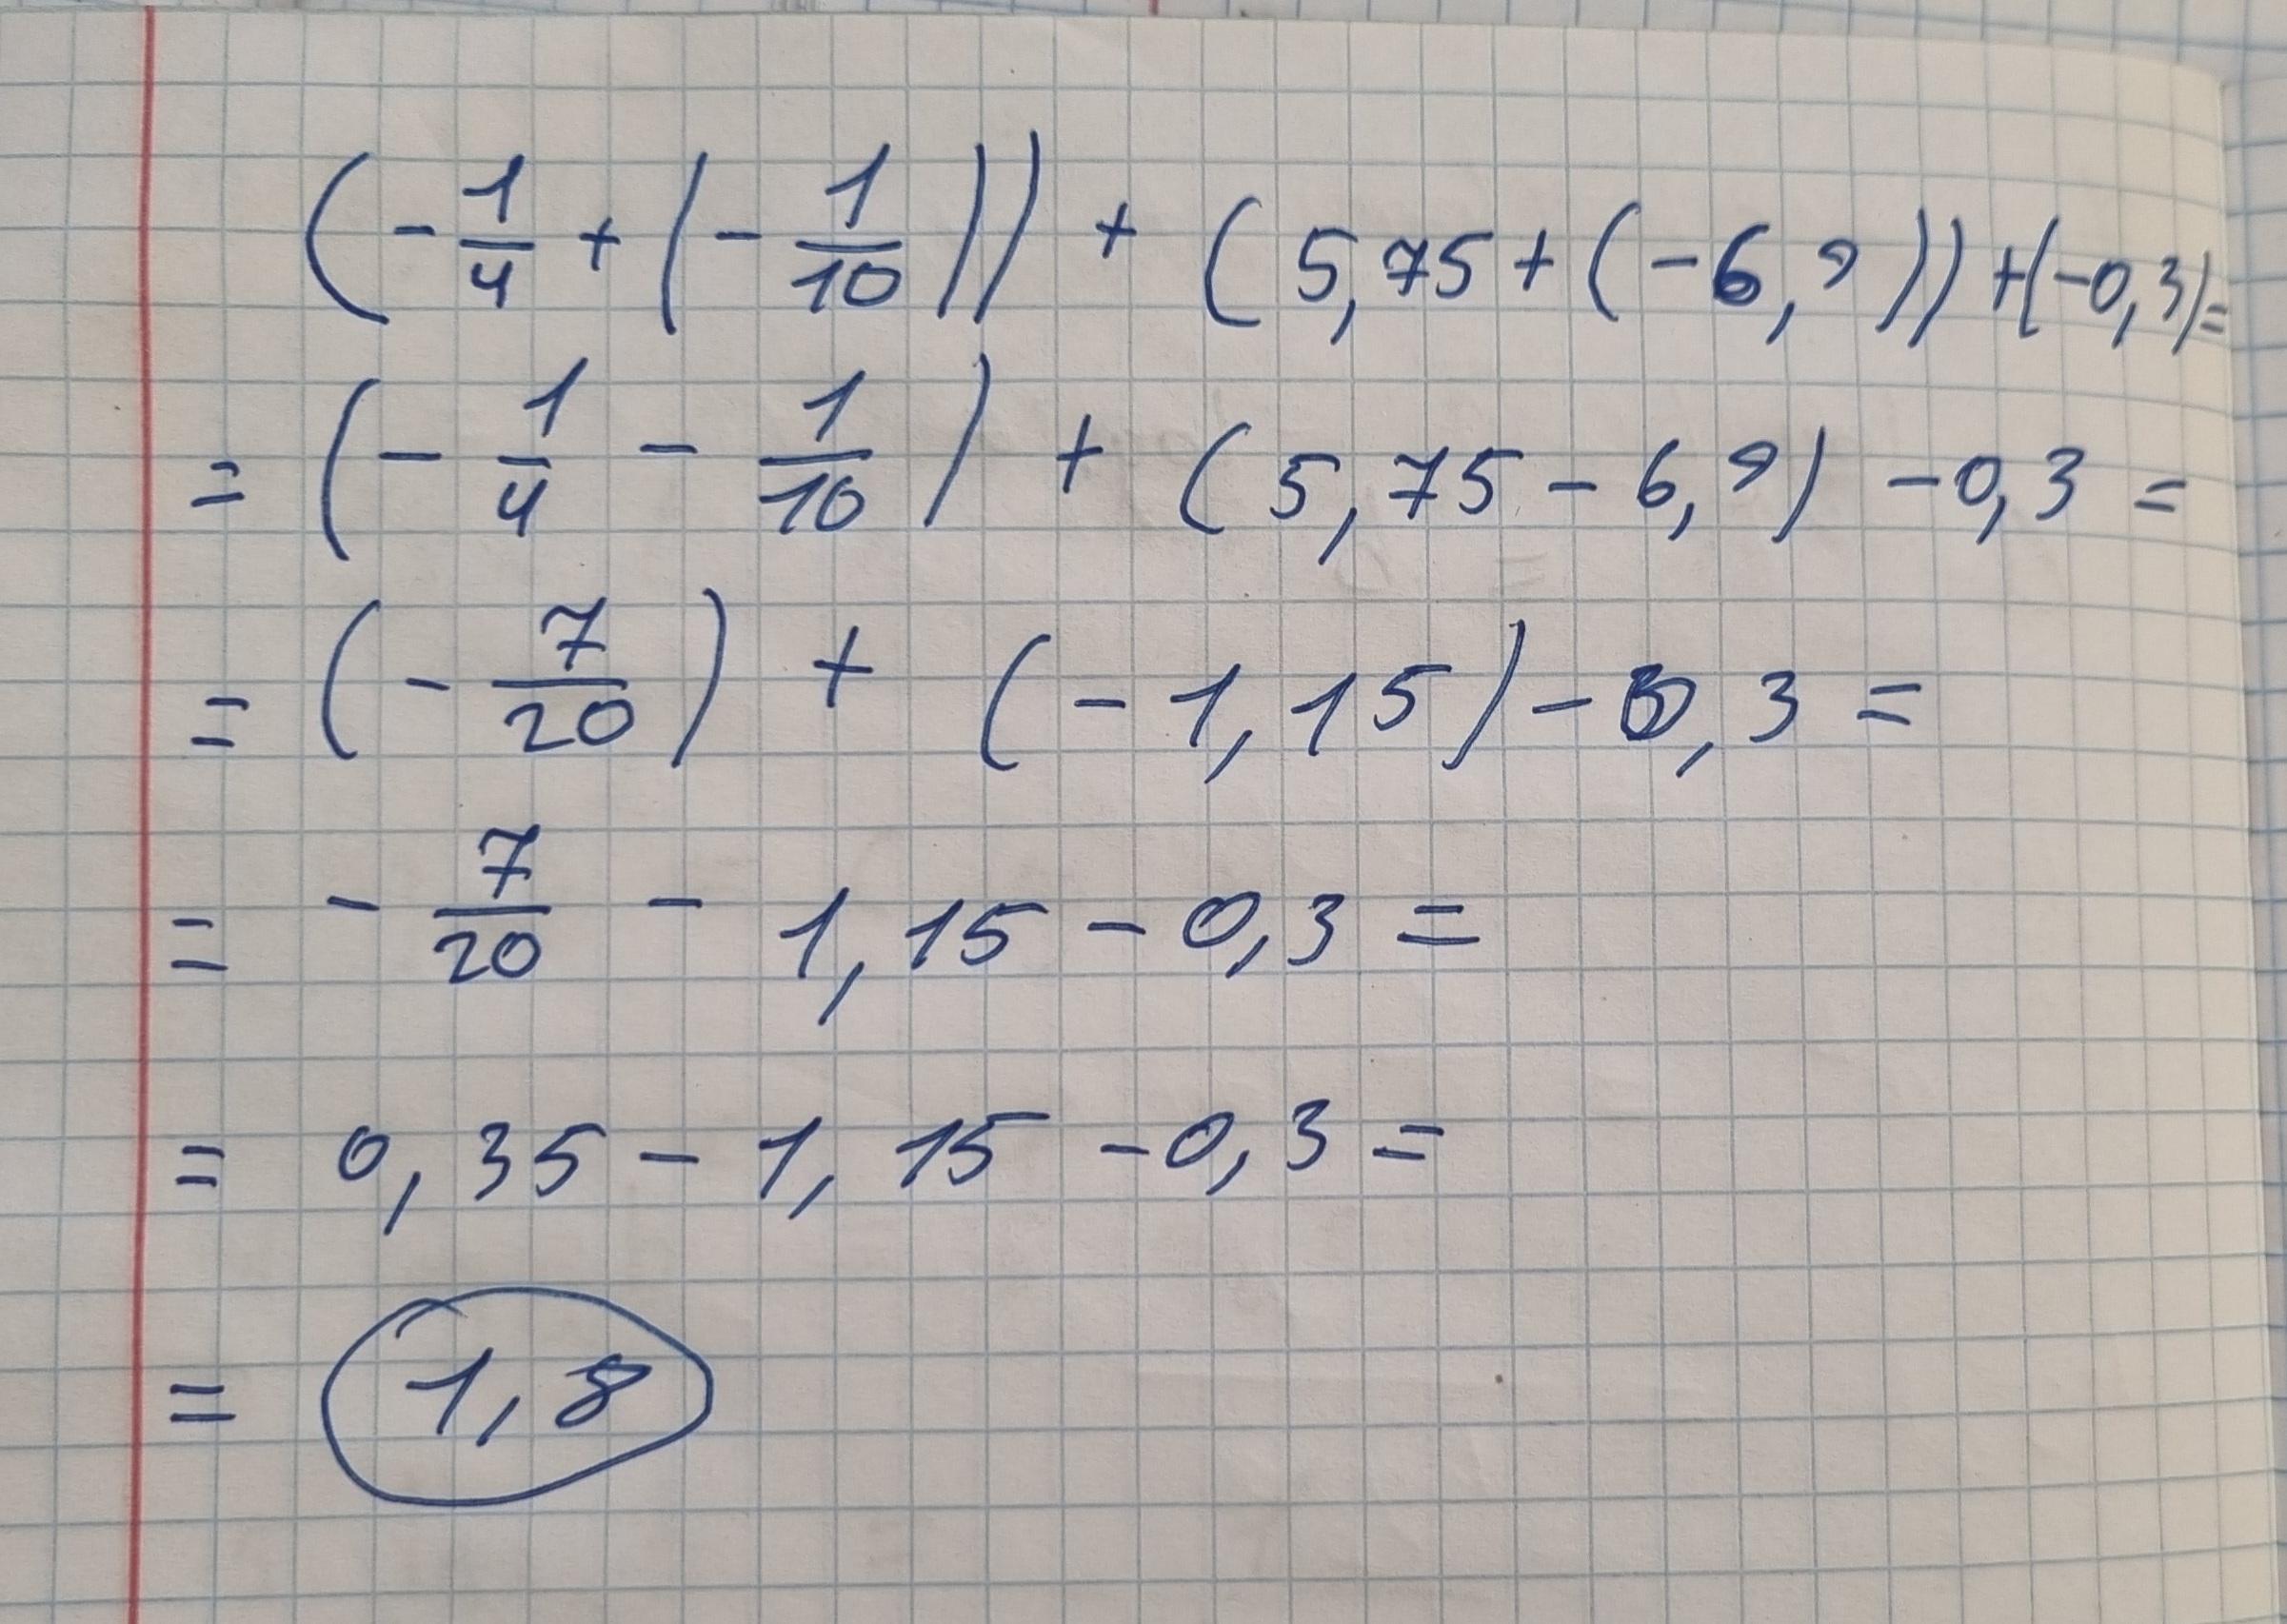 (-1/4 + (-1/10)) + (5,75 + (-6,9)) + (-0,3) =
= (-1/4 - 1/10) + (5,75 - 6,9) - 0,3 =
= (-7/20) + (-1,15) - 0,3 =
= -7/20 - 1,15 - 0,3 =
= 0,35 - 1,15 - 0,3 =
= 1,8